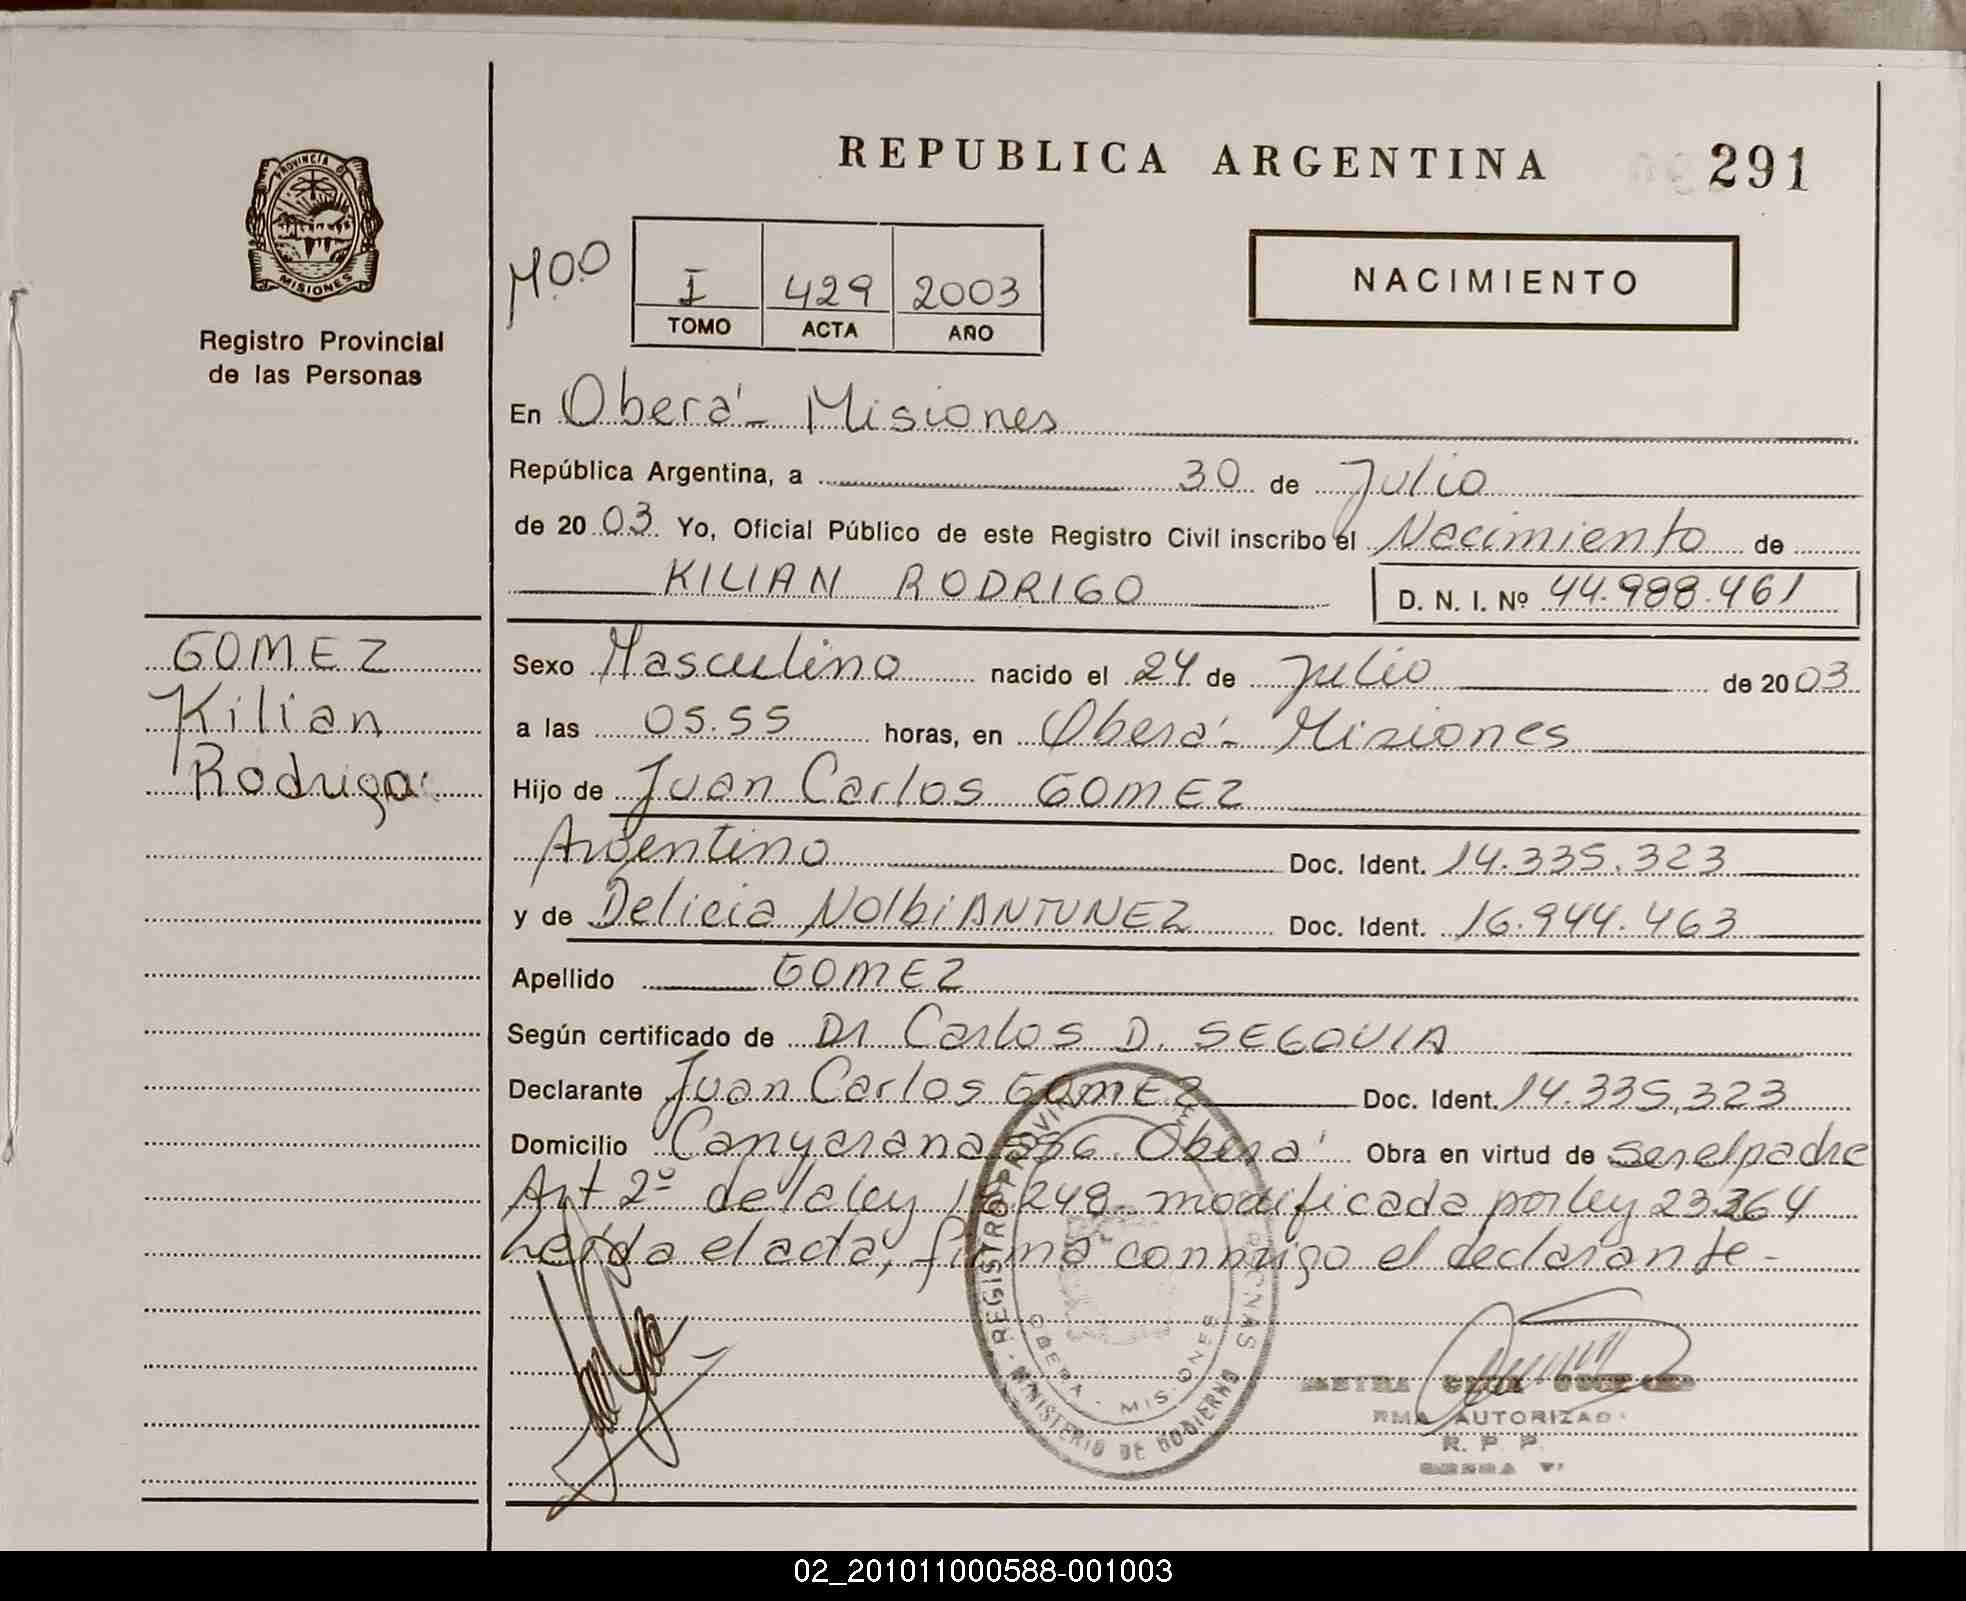 REPUBLICA ARGENTINA 291
PROVINCIA D
MISIONES
Registro Provincial
de las Personas
M.O.O
I 429 2003
TOMO ACTA AÑO
NACIMIENTO
En Oberá - Misiones
República Argentina, a 30 de Julio
de 20 03 Yo, Oficial Público de este Registro Civil inscribo el Nacimiento de
KILIAN RODRIGO D. N. I. Nº 44.988.461
GOMEZ
Kilian
Rodrigo
Sexo Masculino nacido el 24 de Julio de 20 03
a las 05.55 horas, en Oberá - Misiones
Hijo de Juan Carlos GOMEZ
Argentino Doc. Ident. 14.335.323
y de Delicia Nolbi ANTUNEZ Doc. Ident. 16.944.463
Apellido GOMEZ
Según certificado de Dr Carlos D. SEGOVIA
Declarante Juan Carlos GOMEZ Doc. Ident. 14.335.323
Domicilio Oberá Obra en virtud de ser el padre
Art 2º de la ley 18.248 modificada por ley 23264
Leída el acta, firma conmigo el declarante -
REGISTRO PROVIN ONAS
MINISTERIO DE GOBIERNO
OBERA - MISIONES
RMA AUTORIZAD
R. P. P.
02_201011000588-001003